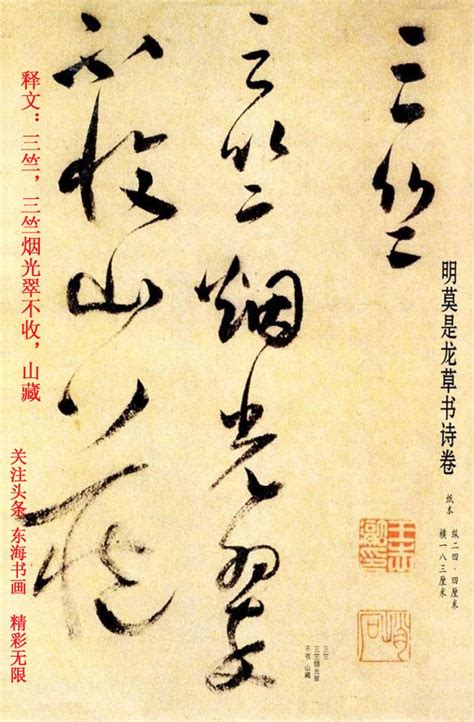 明莫是龙草书诗卷
纸本
纵二四·四厘米
横一八三厘米
三竺
三竺烟光翠
不收山藏
三竺
三竺烟光翠
不收山藏
释文：三竺，三竺烟光翠不收，山藏
关注头条 东海书画 精彩无限